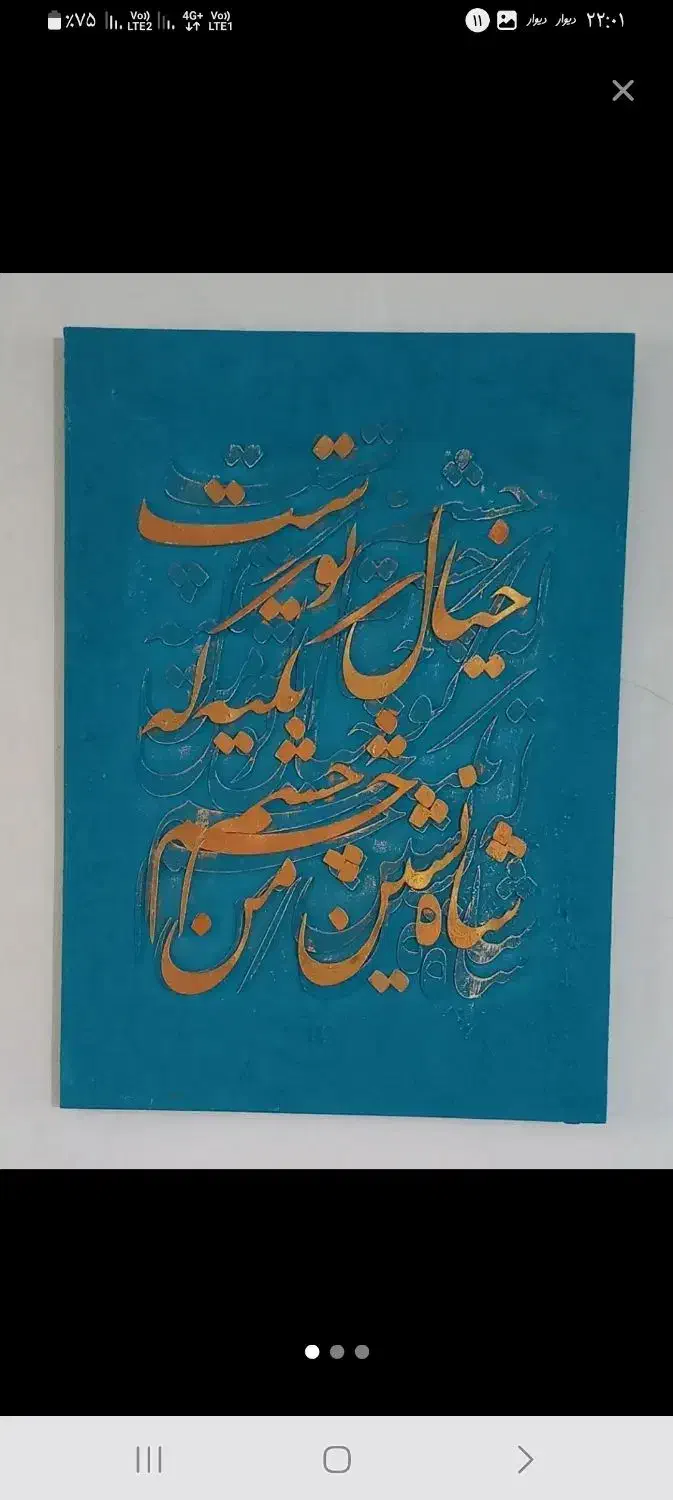 ۲۲:۰۱ دیوار دیوار ۱۱
Vo)) LTE1 4G+ Vo)) LTE2 ٪۷۵
شاه نشین چشم من
تکیه گه
خیال توست